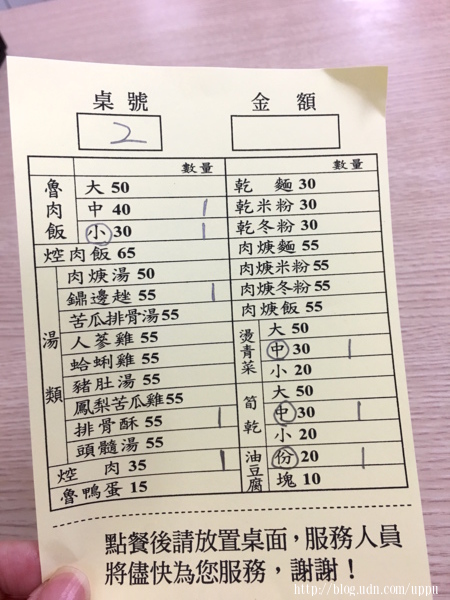 桌號 金額
2
數量 數量
魯肉飯 大 50
中 40 1
小 30 1
焢肉飯 65
湯類 肉焿湯 50
鼎邊趖 55 1
苦瓜排骨湯 55
人蔘雞 55
蛤蜊雞 55
豬肚湯 55
鳳梨苦瓜雞 55
排骨酥 55 1
頭髓湯 55
焢肉 35 1
魯鴨蛋 15
乾麵 30
乾米粉 30
乾冬粉 30
肉焿麵 55
肉焿米粉 55
肉焿冬粉 55
肉焿飯 55
燙青菜 大 50
中 30 1
小 20
筍乾 大 50
中 30 1
小 20
油豆腐 份 20 1
塊 10
點餐後請放置桌面，服務人員
將儘快為您服務，謝謝！
http://blog.udn.com/uppu